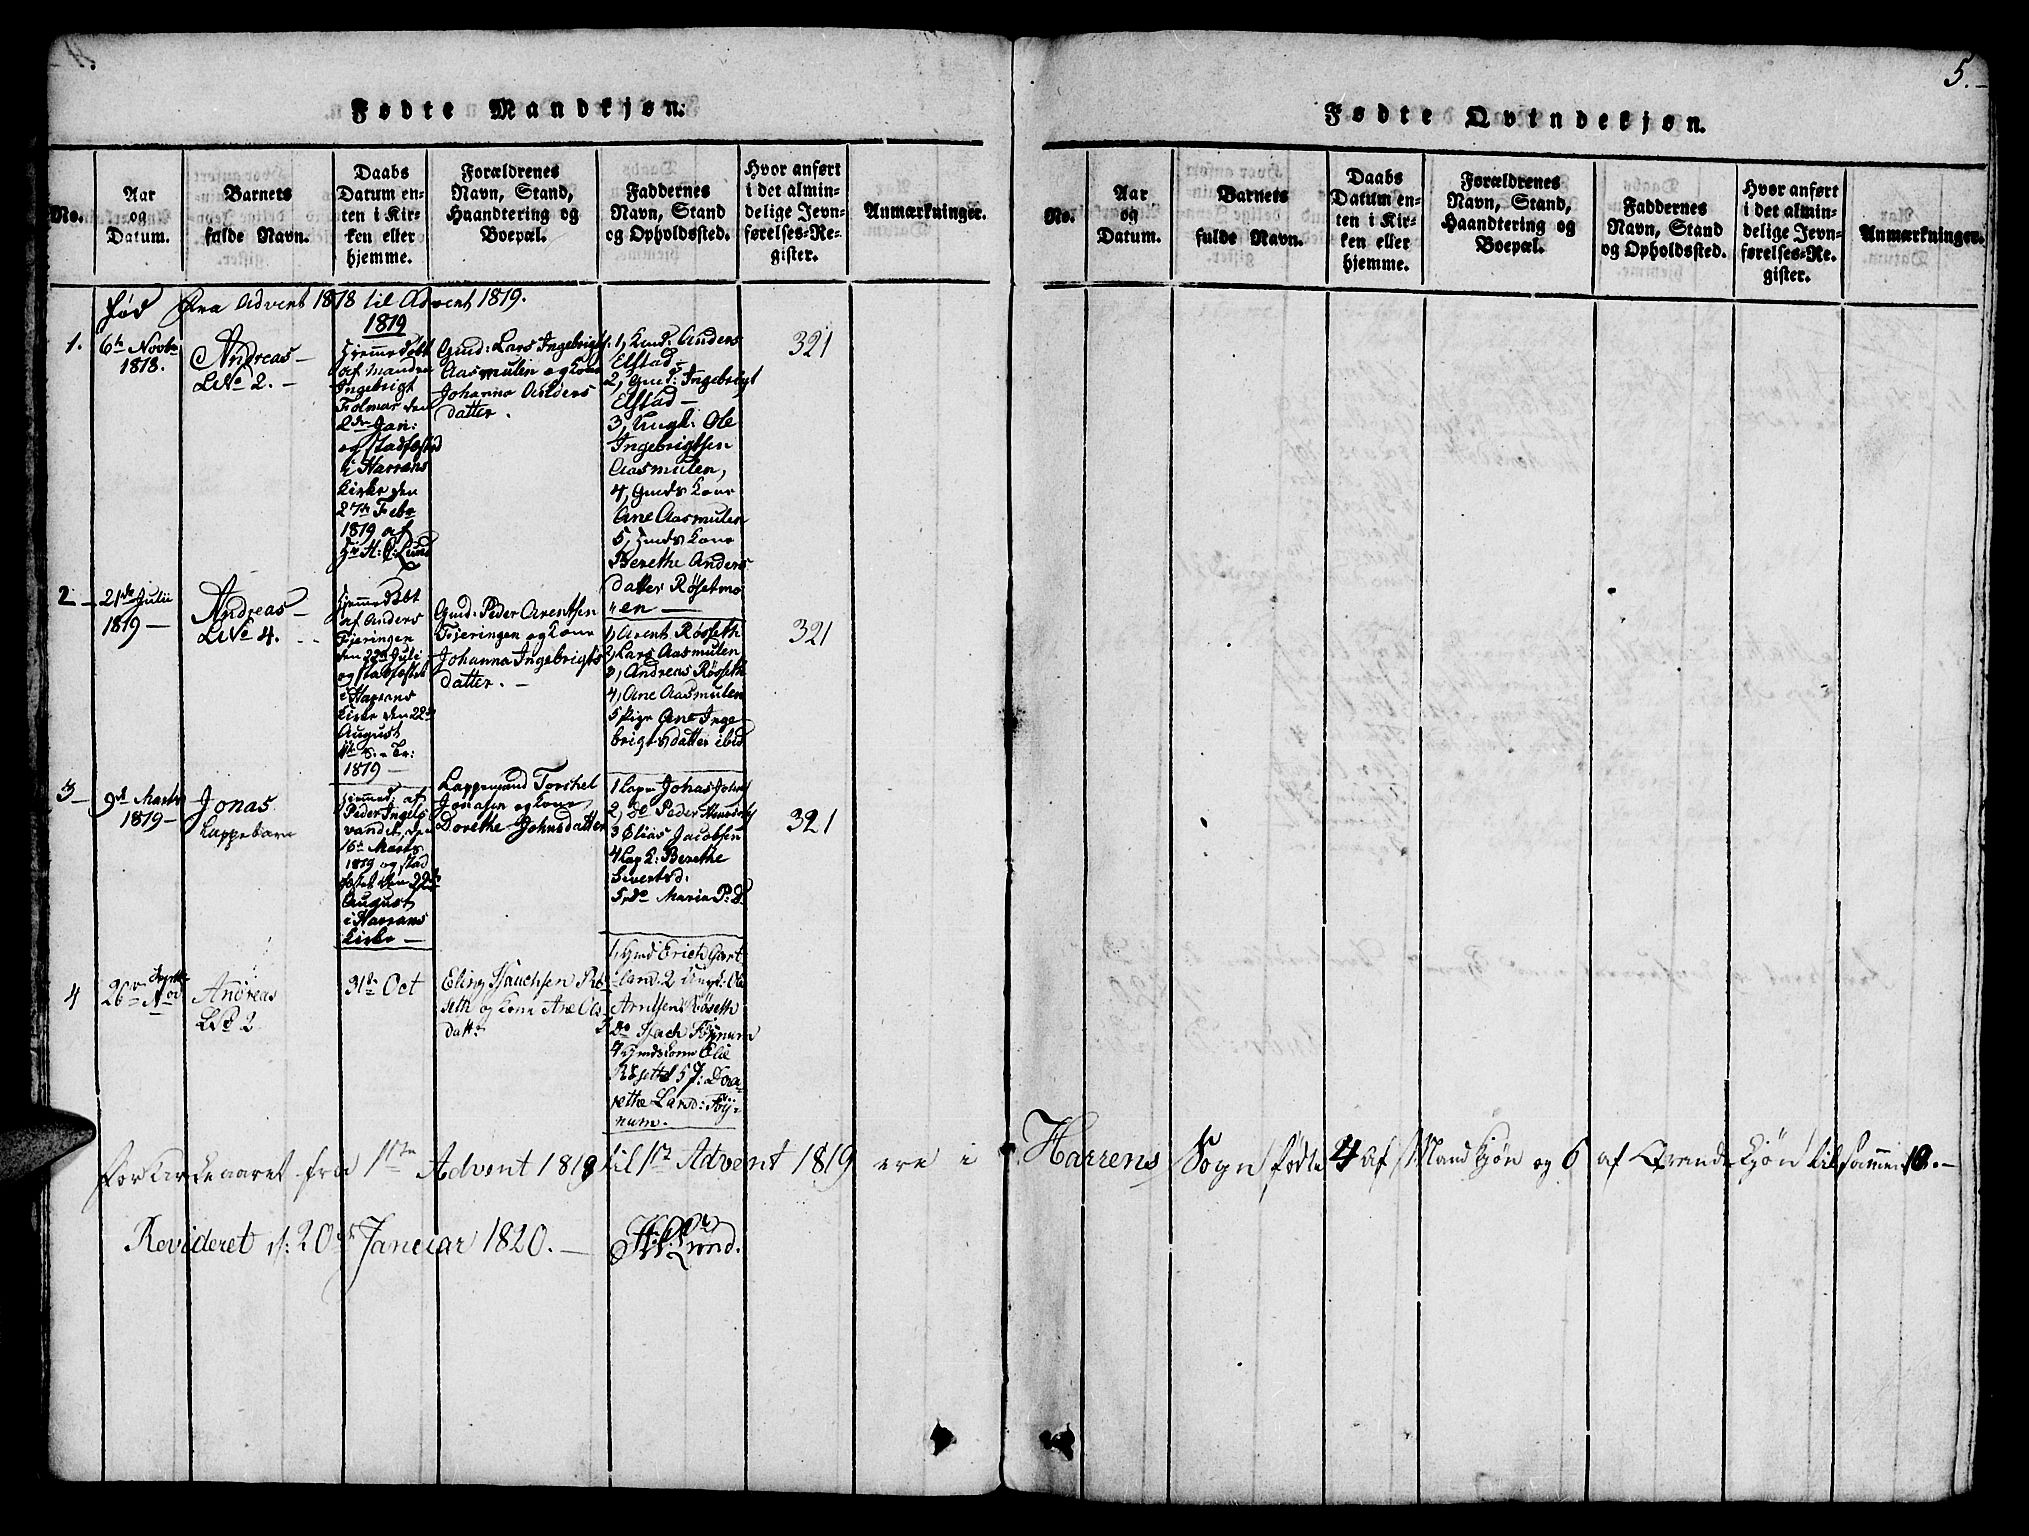 4.
Fødte Mandkjøn.
No.
Aar
og
Datum.
Barnets
fulde Navn.
Daabs
Datum en-
ten i Kir-
ken eller
hjemme.
Forældrenes
Navn, Stand,
Haandtering og
Boepæl.
Faddernes
Navn, Stand
og Opholdssted.
Hvor anført
i det almin-
delige Jevn-
førelses-Re-
gister.
Anmærkninger.
Fød Fra Advent 1818 til Advent 1819.
1.
6te Novbr
1818.
Andreas
L No 2.
1819
Hjemmedøbt
af
Ingebrigt
Folmar den
2den Jan:
og stadfæsted
i Harrans
Kirke den
27de Febr
1819 af
Hr H: P: Lund
Gmd: Lars Ingebrigts:
Aasmulen og Kone
Johanna Anders
datter.
1, Gmd: Anders
Elstad
2, Gmd: Ingebrigt
Elstad
3, Ungk: Ole
Ingebrigtsen
Aasmulen,
4, Gmds Kone
Ane Aasmulen
5, Gmds Kone
Berethe Anders
datter Røsetmo
en
321
2
21de Julii
1819
Andreas
L No 4.
Hjemmedøbt
af Anders
Fjeringen
den 22de Juli
og stadfæstet
i Harrans
Kirke den 22de
August
1819
Gmd: Peder Arentsen
Fjeringen og Kone
Johanna Ingebrigts
datter.
1, Arent Røsseth
2, Lars Aasmulen
3, Andreas Røsseth
4, Ane Aasmulen
5 Pige Ane Inge
brigtsdatter ibid
321
3
9de Marts
1819
Jonas
Lappebarn
Hjemmed: af
Peder Ingels
vandet, den
16de Marts
1819 og stad
fæstet den 22de
August
i Harrans
Kirke
Lappemand Torchel
Jonasen og Kone
Dorethe Johnsdatter
1 Lap Johas
2, Do Peder
3 Elias Jacobsen
4 Lap Q: Berethe
Sivertsd:
5, do Maria P: D
321
4
26
Andreas
L No 2
31te Oct
Eling
seth og Kone Ane Ols
datter
1, Gmd Erich Gart
land. 2 Ungk: Ole
Arntsen Røseth
3 Do
4 Gmdskone Elie
Røseth 5 P: Dor
rethe Larsd:
num.
For Kirkeaaret fra 1ste Advent 1818 til 1ste Advent 1819 ere i
Revideret d: 20de Januar 1820. H: P: Lund.
5.
Fødte Qvindekjøn.
No.
Aar
og
Datum.
Barnets
fulde Navn.
Daabs
Datum en-
ten i Kir-
ken eller
hjemme.
Forældrenes
Navn, Stand,
Haandtering og
Boepæl.
Faddernes
Navn, Stand
og Opholdssted.
Hvor anført
i det almin-
delige Jevn-
førelses-Re-
gister.
Anmærkninger.
Harrens Sogn fødte 4 af Mandkjøn og 6 af Qvindekjøn tilsammen 10.